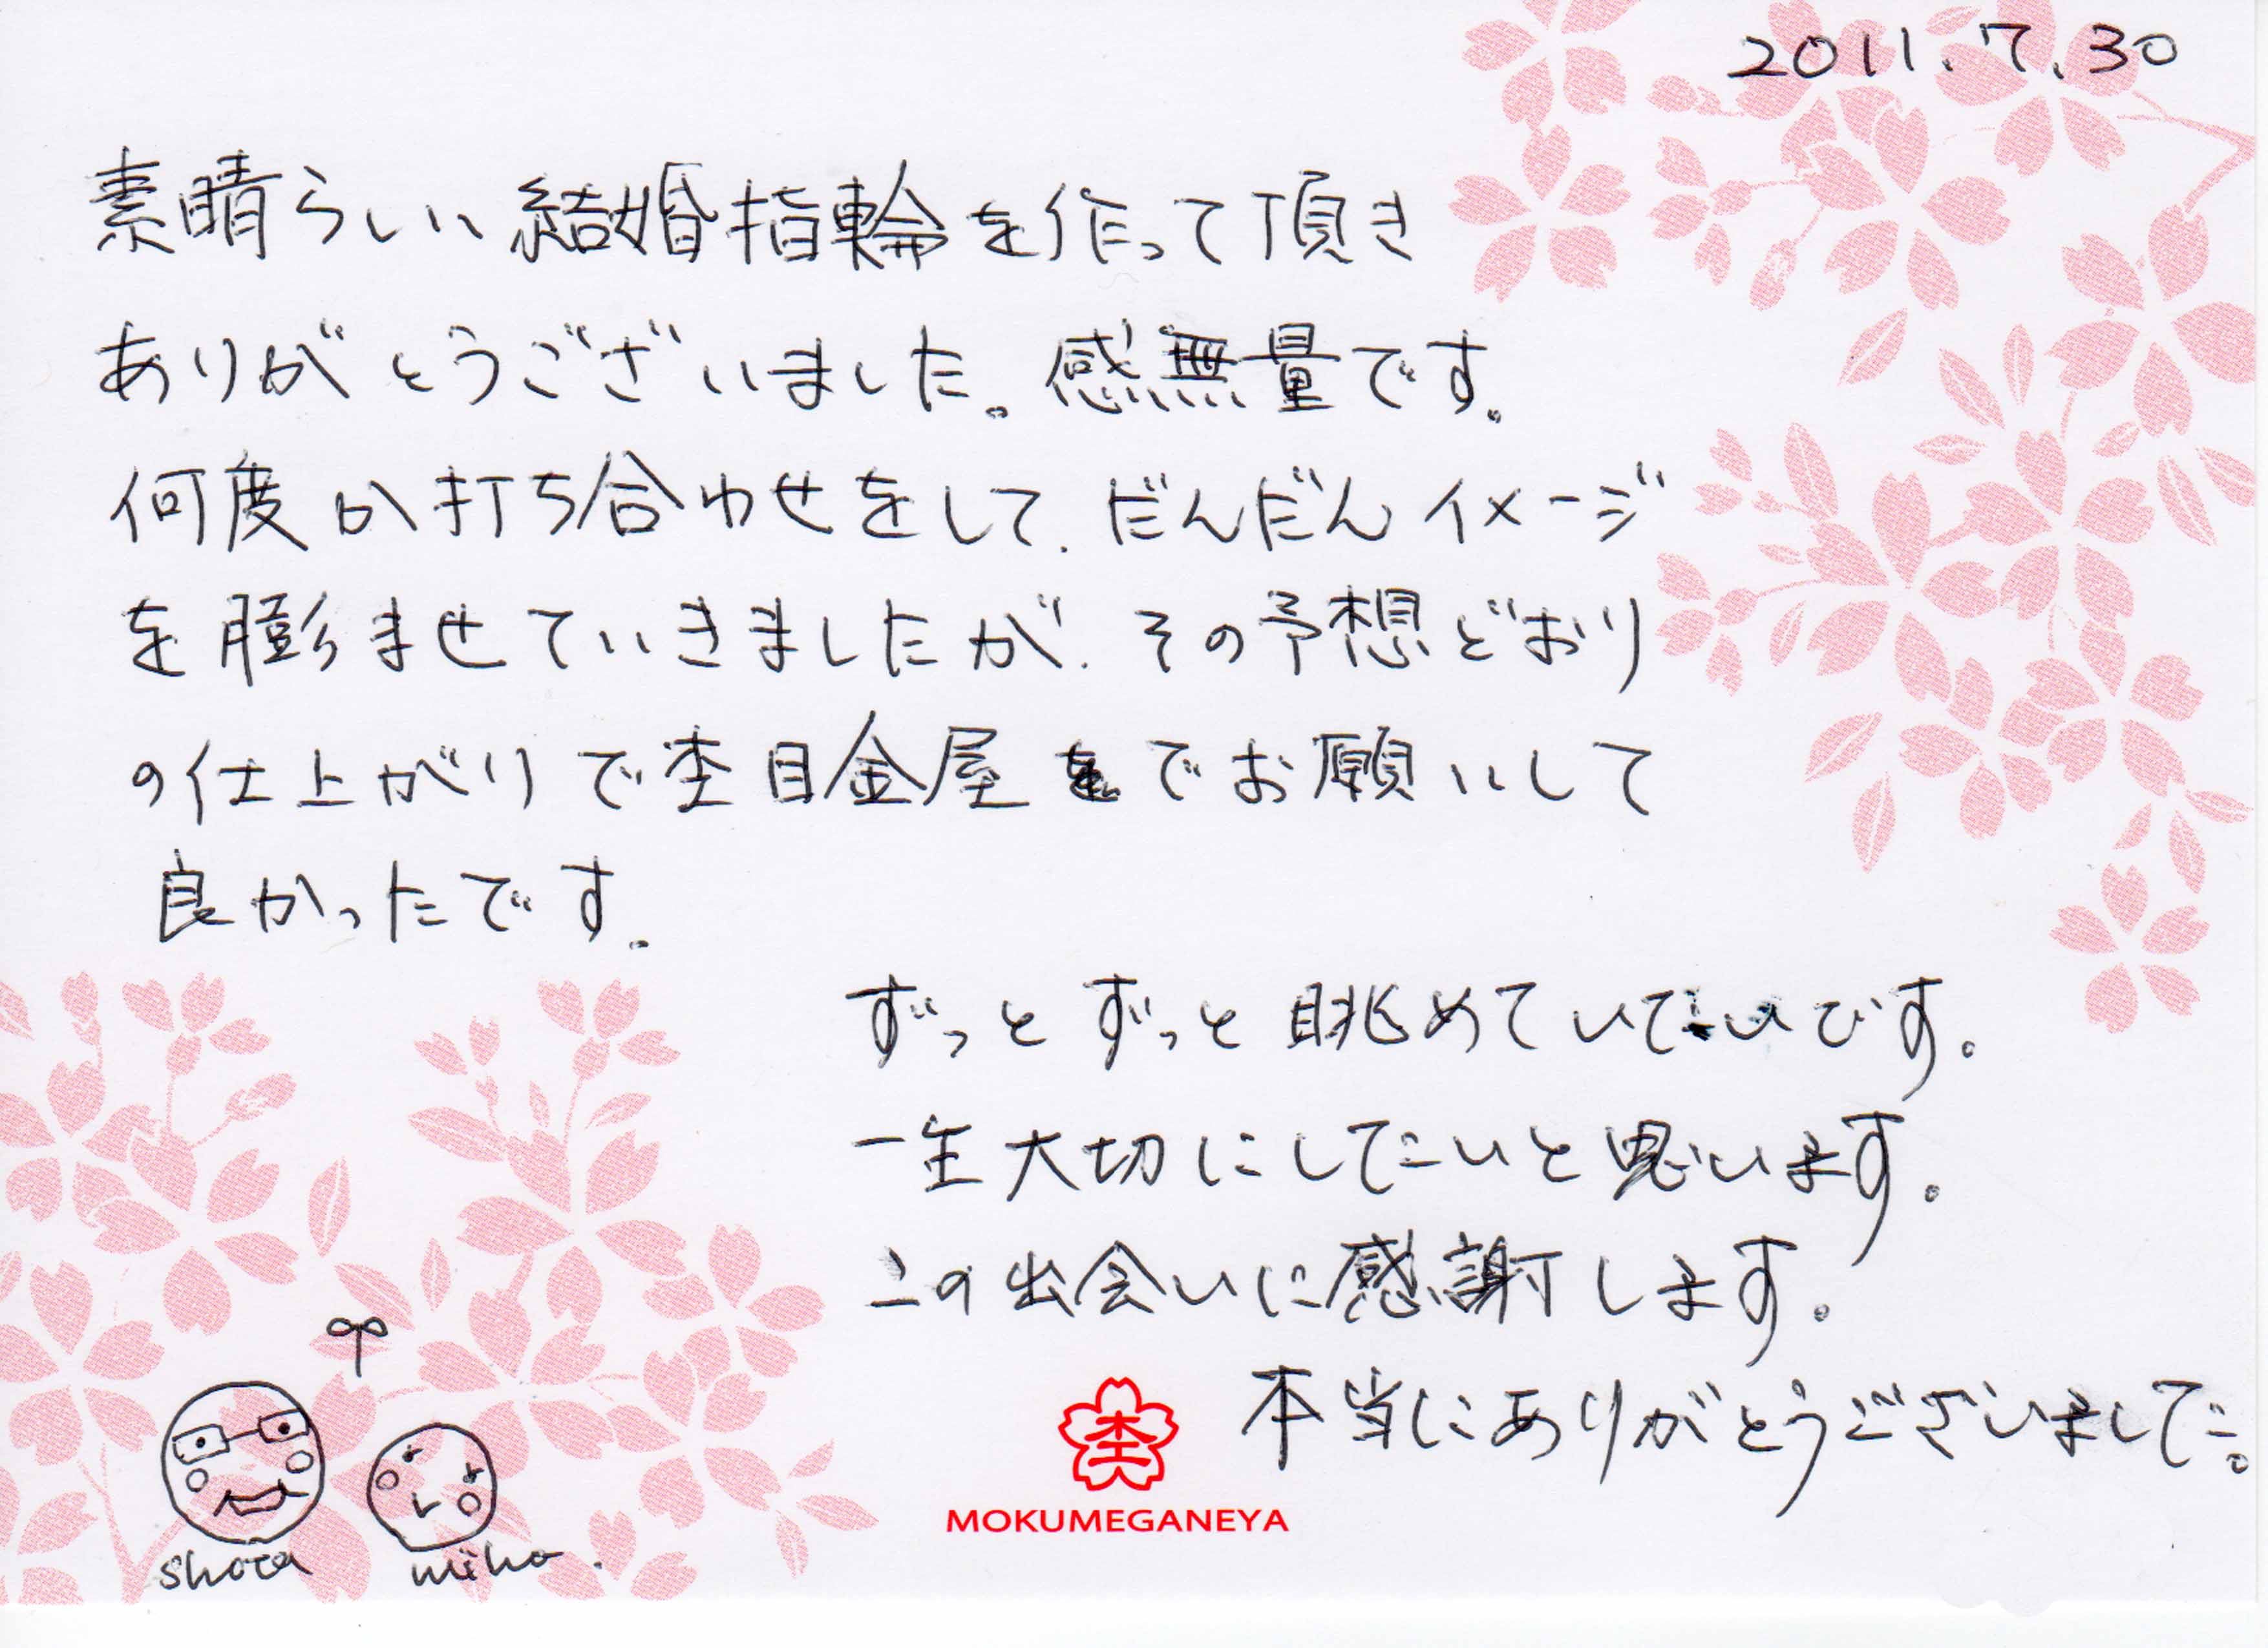 2011.7.30
素晴らしい結婚指輪を作って頂き
ありがとうございました。感無量です。
何度か打ち合わせをして、だんだんイメージ
を膨ませていきましたが、その予想どおり
の仕上がりで杢目金屋でお願いして
良かったです。
ずっとずっと眺めていたいです。
一生大切にしたいと思います。
この出会いに感謝します。
本当にありがとうございました。
杢
MOKUMEGANEYA
shota miho.